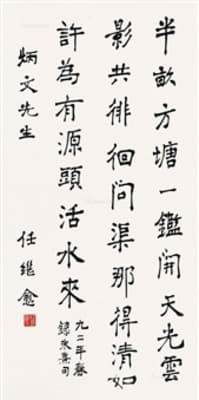 半畝方塘一鑑開天光雲
影共徘徊问渠那得清如
許為有源頭活水來
九二年春
錄朱熹句
炳文先生
任繼愈